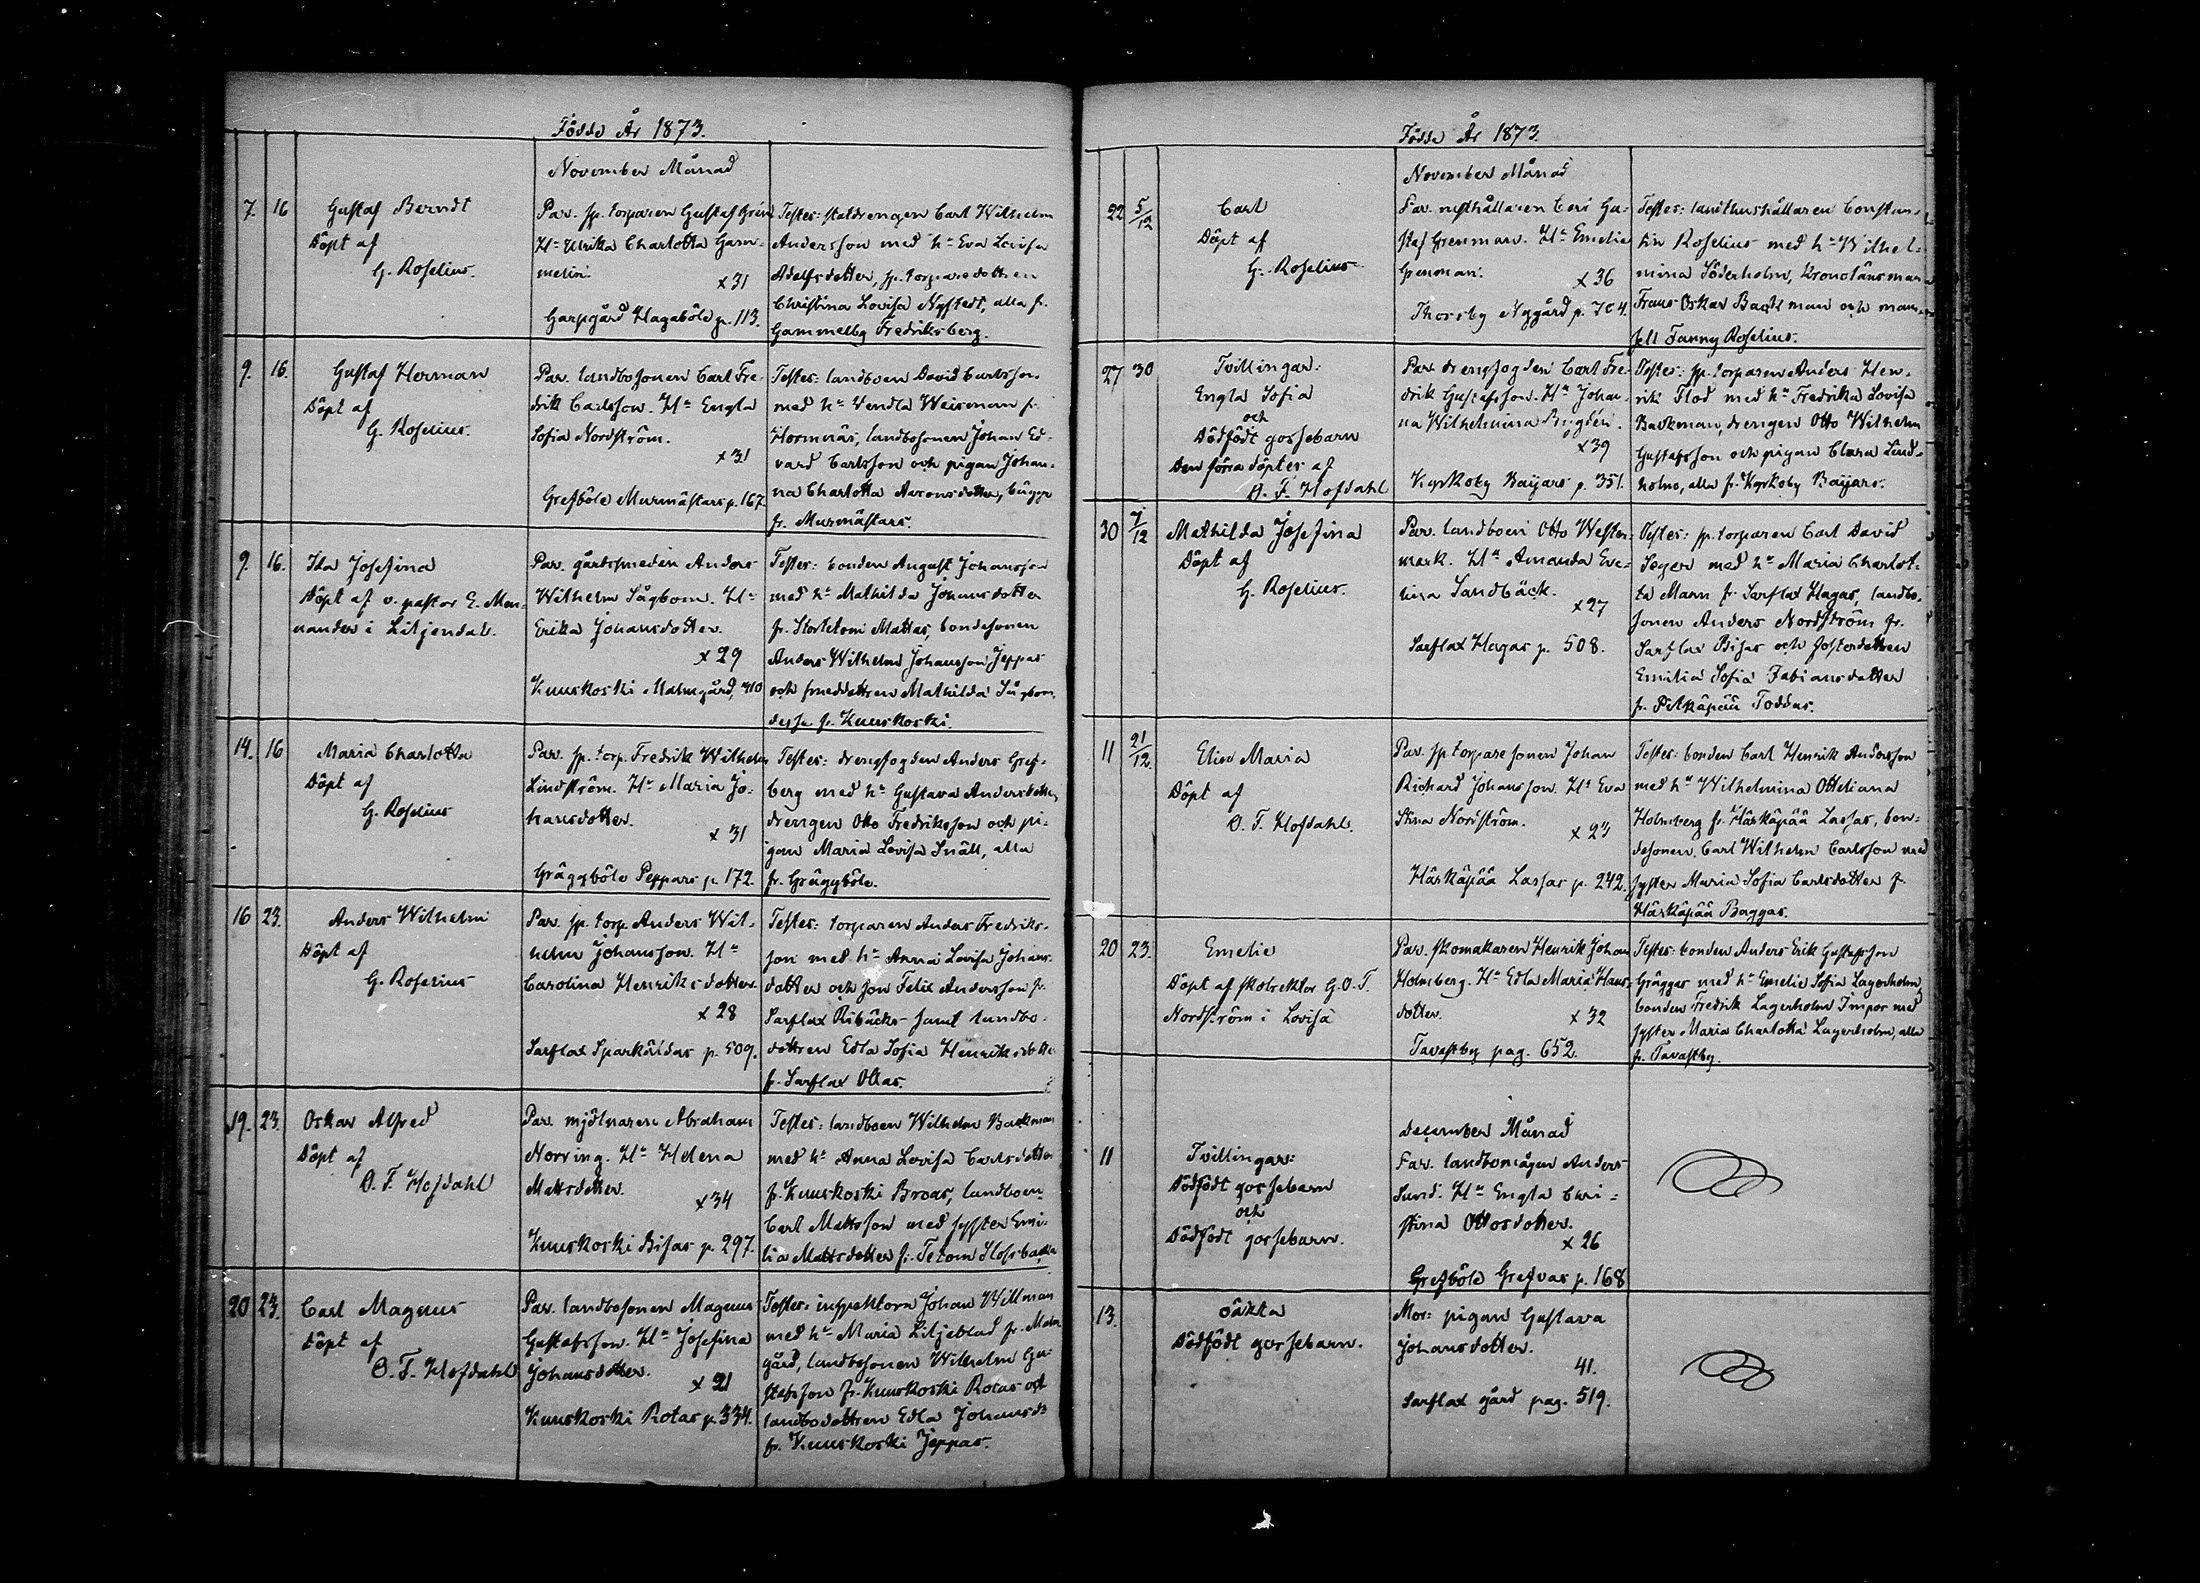 Födde År 1873.
November Månad
7. 16 Gustaf Berndt
Döpt af
G. Roselius.
Par. sp. torparen Gustaf Grön
H:a Ulrika Charlotta Gam-
melin.
x 31
Garpgård Hagaböle p. 113.
Testes: statdrengen Carl Wilhelm
Andersson med h:u Eva Lovisa
Adolfsdotter, sp. torparedottren
Christina Lovisa Nystedt, alla fr.
Gammelby Fredriksberg.
9. 16. Gustaf Herman
Döpt af
G. Roselius.
Par. landbosonen Carl Fre-
drik Carlsson. H:u Engla
Sofia Nordström.
x 31
Grefböle Murmästars p. 167.
Testes: landboen David Carlsson
med h:u Vendla Weisman fr.
Hormnäs, landbosonen Johan Ed-
vard Carlsson och pigan Johan-
na Charlotta Aaronsdotter, bägge
fr. Murmästars.
9. 16. Ida Josefina
Döpt af v. pastor E. Men-
nander i Liljendal.
Par. gårdssmeden Anders
Wilhelm Sågbom. H:u
Erika Johansdotter.
x 29
Kuuskoski Malmgård, 310
Testes: bonden August Johansson
med h:u Mathilda Johansdotter
fr. Stortetom Mattas, bondesonen
Anders Wilhelm Johansson Jeppas
och smeddottren Mathilda Sågbom,
desse fr. Kuuskoski.
14. 16 Maria Charlotta
Döpt af
G. Roselius
Par. sp. torp. Fredrik Wilhelm
Lindström. H:u Maria Jo-
hansdotter.
x 31
Gräggböle Peppars p. 172.
Testes: drengfogden Anders Gref-
berg med h:u Gustava Andersdotter,
drengen Otto Fredriksson och pi-
gan Maria Lovisa Snäll, alla
fr. Gräggböle.
16 23. Anders Wilhelm
Döpt af
G. Roselius
Par. sp. torp. Anders Wil-
helm Johansson. H:u
Carolina Henriksdotter.
x 28
Sarflax Sparkäldas p. 509.
Testes: torparen Anders Fredriks-
son med h:u Anna Lovisa Johans-
dotter och son Felix Andersson fr.
Sarflax Ribäcks samt landbo-
dottren Edla Sofia Henriksdotter
fr. Sarflax Ollas.
19. 23. Oskar Alfred
Döpt af
O. F. Hofdahl
Par. mjölnaren Abraham
Norring. H:u Helena
Mattsdotter.
x 34
Kuuskoski Bisas p. 297.
Testes: landboen Wilhelm Backman
med h:u Anna Lovisa Carlsdotter
fr. Kuuskoski Broas, landboen
Carl Mattsson med syster Emi-
lia Mattsdotter fr. Tetom
20 23. Carl Magnus
Döpt af
O. F. Hofdahl
Par. landbosonen Magnus
Gustafsson. H:u Josefina
Johansdotter.
x 21
Kuuskoski Rotas p. 334.
Testes: inspektorn Johan Willman
med h:u Maria Liljeblad fr. Malm
gård, landbosonen Wilhelm Gu-
stafsson fr. Kuuskoski Rotas och
landbodottren Edla Johansdr
fr. Kuuskoski Jeppas.
Födde År 1873.
November Månad
22 5/12 Carl
Döpt af
G. Roselius
Par. rusthållaren Carl Gu-
staf Grenman. H:u Emelie
Grenman.
x 36
Thorsby Nygård p. 704.
Testes: landthushållaren Constan-
tin Roselius med h:u Wilhel-
mina Söderholm, Kronolänsman
Frans Oskar Backman och mam-
sell Fanny Roselius.
27 30 Tvillingar:
Engla Sofia
och
Dödfödt gossebarn
Den förra döptes af
O. F. Hofdahl
Par. drengfogden Carl Fre-
drik Gustafsson. H:u Johan-
na Wilhelmina
x 39
Kyrkoby Baijars p. 351.
Testes: sp. torparen Anders Hen-
rik Flod med h:u Fredrika Lovisa
Backman, drengen Otto Wilhelm
Gustafsson och pigan Clara Lind-
holm, alla fr. Kyrkoby Baijars.
30 7/12 Mathilda Josefina
Döpt af
G. Roselius.
Par. landboen Otto Wester-
mark. H:u Amanda Eve-
lina Sandbäck.
x 27
Sarflax Hagas p. 508.
Testes: sp. torparen Carl David
Seger med h:u Maria Charlot-
ta Mann fr. Sarflax Hagas, landbo-
sonen Anders Nordström fr.
Sarflax Bisas och fosterdottren
Emilia Sofia Fabiansdotter
fr. Pitkäpää Toddas.
11 21/12. Elin Maria
Döpt af
O. F. Hofdahl.
Par. sp torparesonen Johan
Richard Johansson. H:u Eva
Stina Nordström.
x 23
Härkäpää Lassas p. 242.
Testes: bonden Carl Henrik Andersson
med h:u Wilhelmina Ottiliana
Holmberg fr. Härkäpää Lassas, bon-
desonen Carl Wilhelm Carlsson med
syster Maria Sofia Carlsdotter fr
Härkäpää Baggas.
20 23. Emelie
Döpt af skolrektor G. O. T.
Nordström i Lovisa
Par. skomakaren Henrik Johan
Holmberg. H:u Edla Maria Hans-
dotter.
x 32
Tavastby pag. 652.
Testes: bonden Anders Erik Gustafsson
Gräggas med h:u Emelie Sofia Lagerholm,
bonden Fredrik Lagerholm Impos med
syster Maria Charlotta Lagerholm, alla
fr. Tavastby.
December Månad
11 Tvillingar:
Dödfödt gossebarn
och
Dödfödt gossebarn.
Par. landbomågen Anders
Sund. H:u Engla Chri-
stina Ottosdotter.
x 26
Grefböle Grefvas p. 168
13. oäkta
Dödfödt gossebarn.
Mor: pigan Gustava
Johansdotter.
41.
Sarflax gård pag. 519.